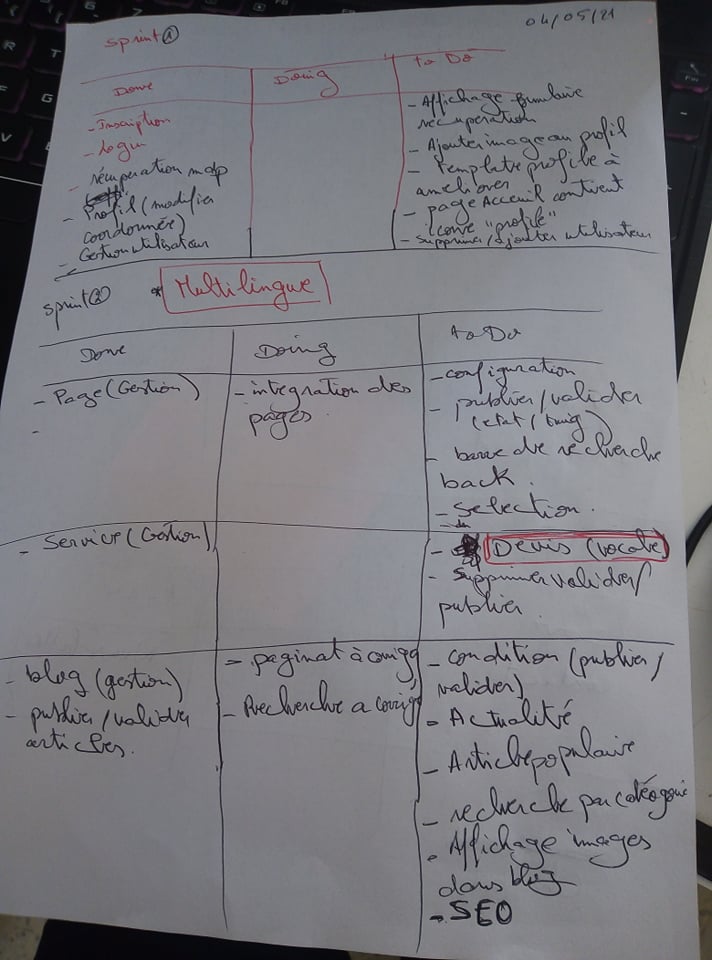 04/05/21
sprint①
Done
Doing
to Do
- Inscription
- Login
- récuperation mdp
- Profil (modifier
coordonnée)
- Gestion utilisateur
- Affichage formulaire
récuperation
- Ajouter image au profil
- Template profile à
améliorer
- page Acceuil contient
icone "profile"
- Supprimer/ajouter utilisateur
sprint②
* Multilingue
Done
Doing
to Do
- Page (Gestion)
-
- intégration des
pages.
- configuration
- publier/valider
(etat/
- barre de recherche
back.
- Selection.
- Service (Gestion)
- Devis (vocale)
- Supprimer valider/
publier.
- blog (gestion)
- publier/valider
articles.
- paginat à corrigé
- Recherche a corrigé
- condition (publier/
valider)
- Actualité
- Article populaire
- recherche par catégorie
- Affichage images
dans blog
- SEO